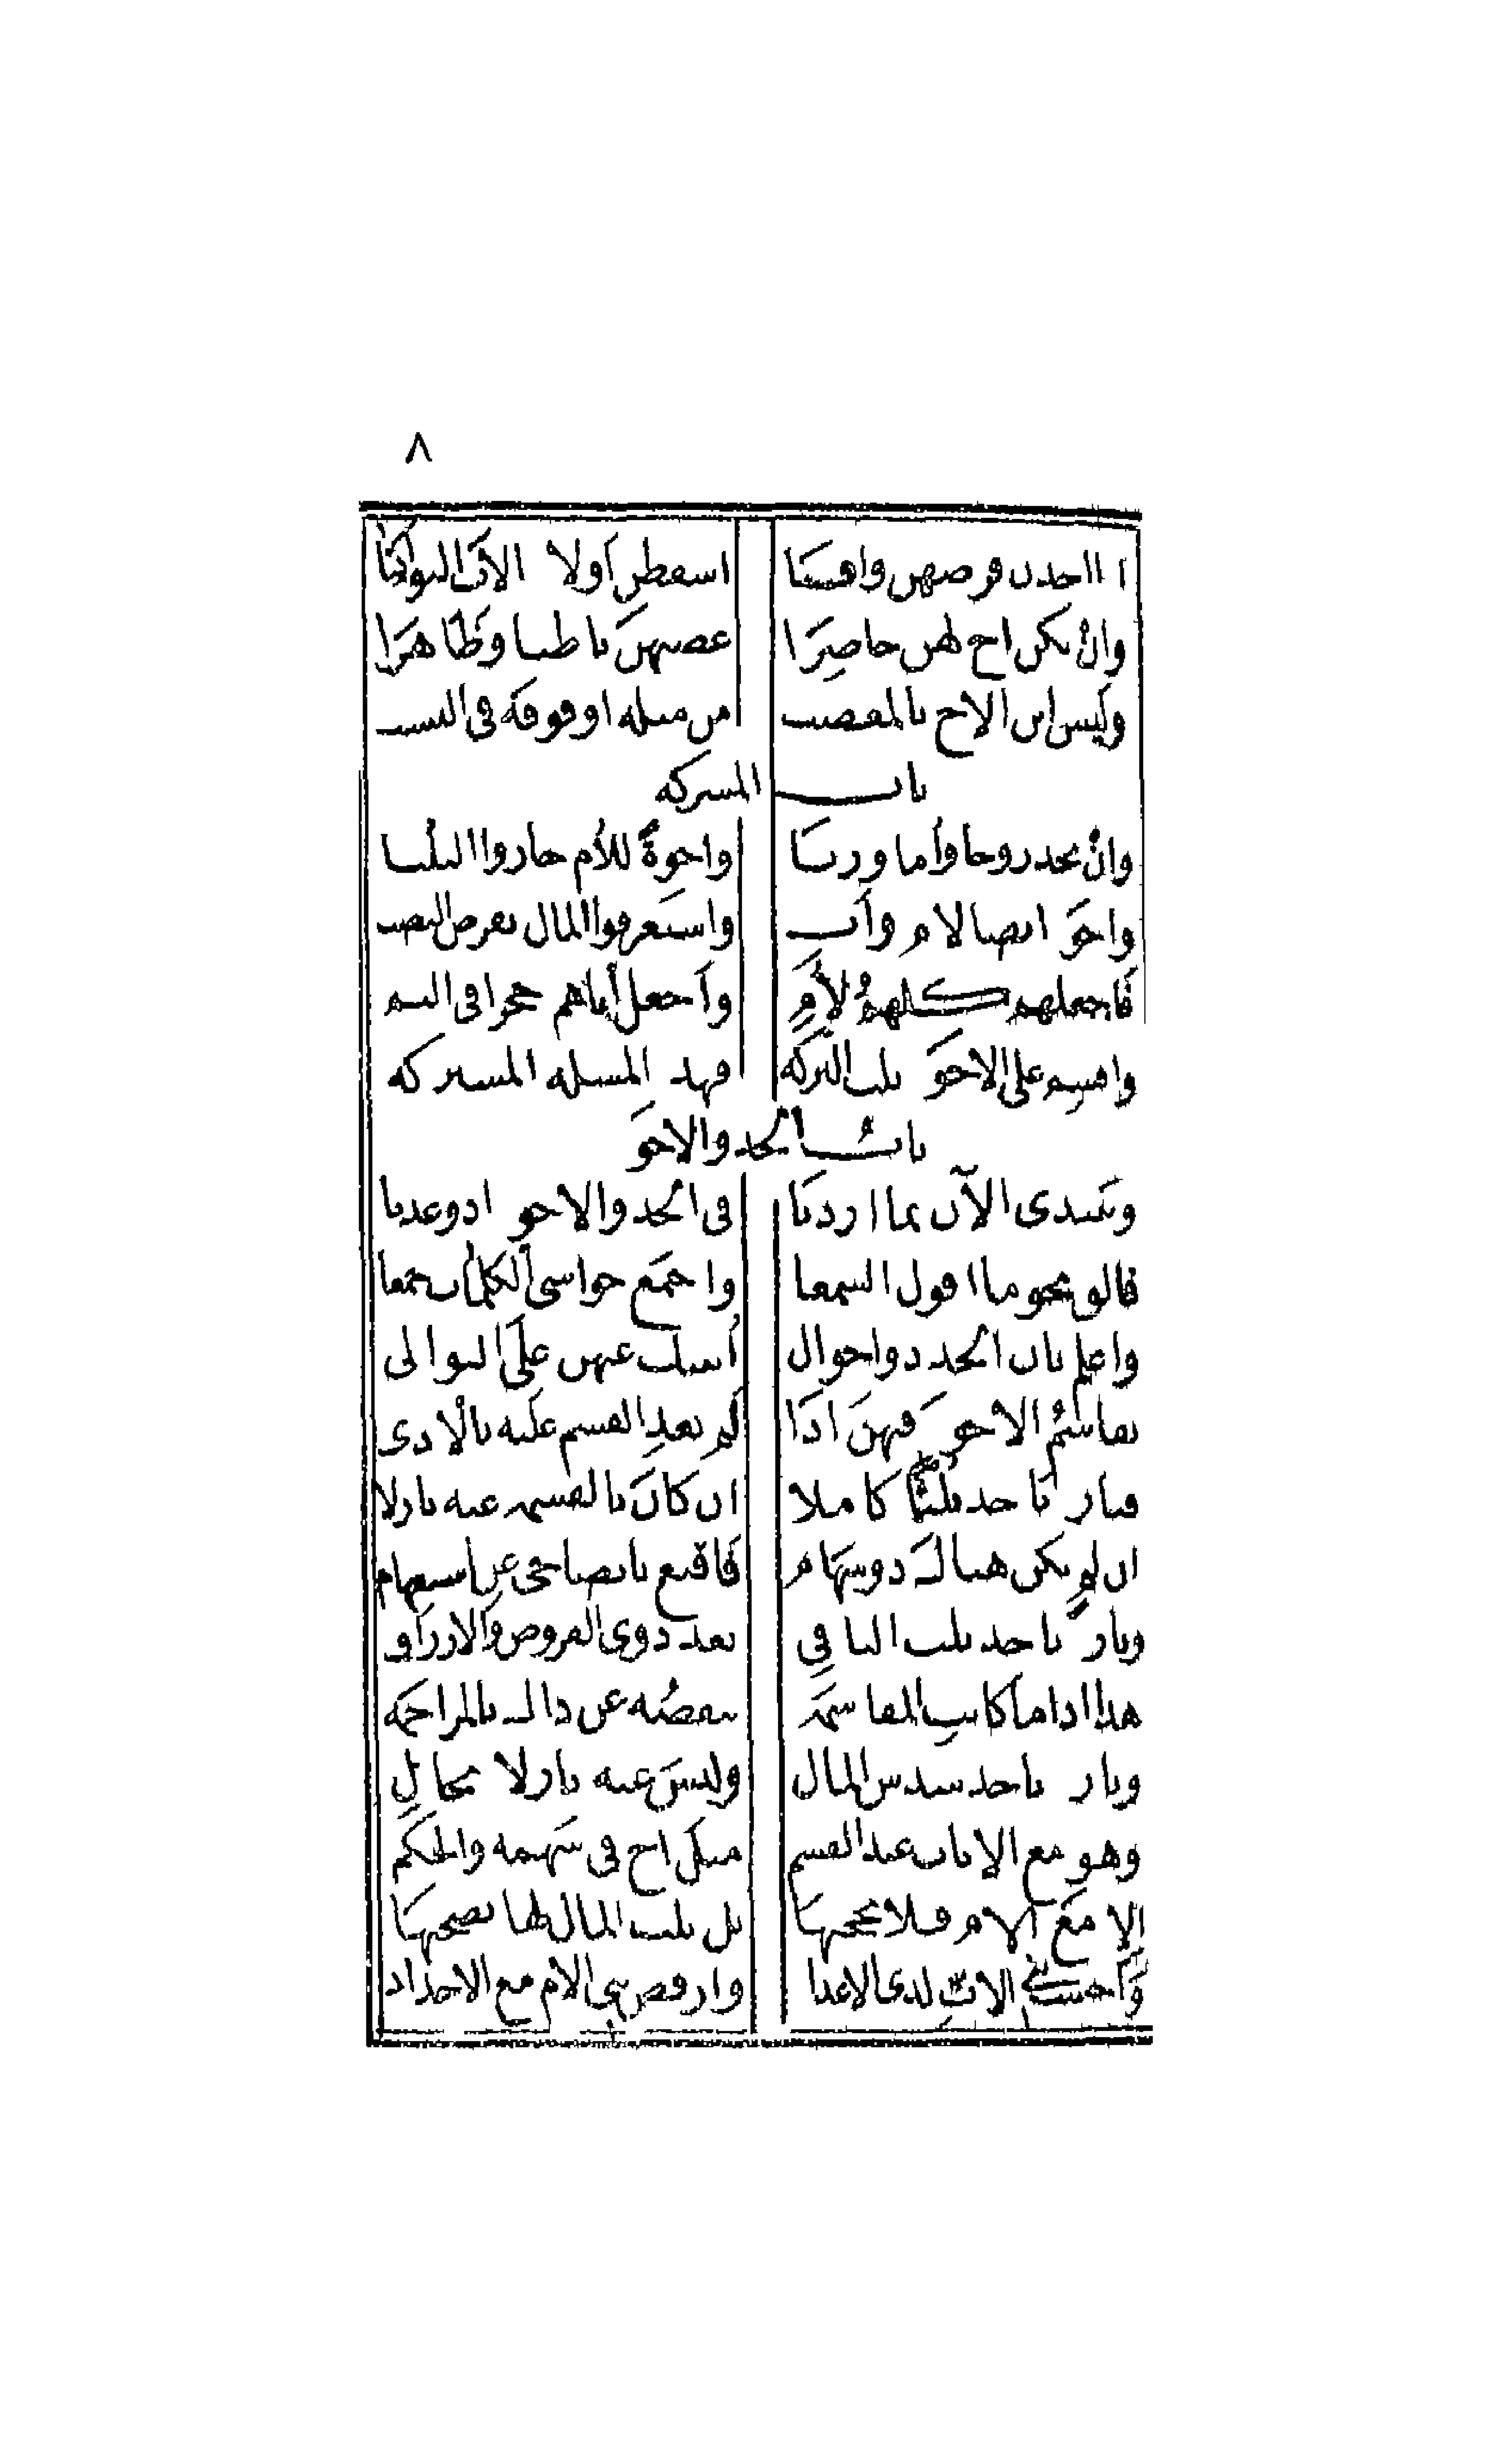 ٨
اذا اخذن فرضهن وافيا اسقطن أولاد الأب البواكيا
وانْ يكن اخ لهن حاضِرَا عصبهنَ باطنا وظَاهَرا
وليس ابن الاخ بالمعصب من مثله او فوقه في النسب
باب المشركه
وانْ تجد زوجا وأما ورثا واخوةً للأم حازوا الثلثا
واخوة ايضا لام وأب واستغرقوا المال بفرض النصب
فاجعلهم كلهمُ لأمِ وأجعل أباهم حجرا في اليم
واقسِم على الاخوة ثلث التركه فهذه المسئله المشتركه
بابُ الجد والاخوة
ونبتدى الآن بما اردنا في الجد والاخوة اذ وعدنا
فالق نحو ما اقول السمعا واجمع حواشي الكلمات جمعا
واعلم بان الجد ذو احوال أنبيك عنهن على التوالى
يقاسمُ الاخوة فيهنَ اذا لم يعدِ القسم عليه بالاذى
فتارة ياخذ ثلثًا كاملا ان كانَ بالقسمة عنه نازلا
ان لم يكن هناك ذو سهام فاقنع بايضاحى عن استفهام
وتارة ياخذ ثلث الباقي بعد ذوى الفروض والارزاق
هذا اذا ما كانت المقاسمة تنقصُه عن ذاك بالمزاحمه
وتارة ياخذ سدس المال وليس عنه نازلا بحالِ
وهو مع الاناث عند القسم مثل اخ في سَهمه والحكم
إلا مع الام فلا يحجبها بل ثلث المال لها يصحبها
وأحسب بني الابِ لدى الاعداد وارفض بني الام مع الاجداد